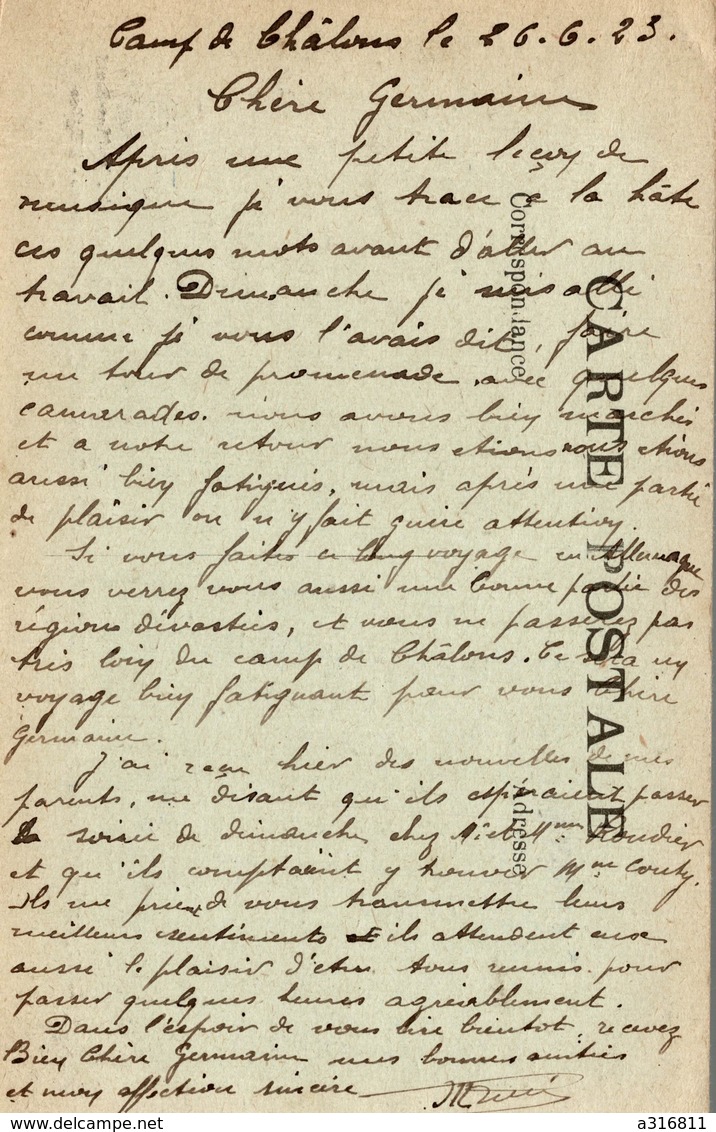 Camp de Châlons le 26.6.23.
Chère Germaine
Après une petite leçon de
musique je vous trace à la hâte
ces quelques mots avant d'aller au
travail. Dimanche je suis allé
comme je vous l'avais dit, faire
un tour de promenade avec quelques
camarades. nous avons bien marchés
et a notre retour nous etions nous etions
aussi bien fatigués, mais après une partie
de plaisir on n'y fait guère attention.
Si vous faites ce long voyage en Allemagne
vous verrez vous aussi une bonne partie des
régions dévastées, et vous ne passerez pas
très loin du camp de Châlons. Ce sera un
voyage bien fatiguant pour vous Chère
Germaine.
J'ai reçu hier des nouvelles de mes
parents, me disant qu'ils espéraient passer
la soirée de dimanche chez Mr et Mme
et qu'ils comptaient y trouver Mme Couty.
Ils me prient de vous transmettre leurs
meilleurs sentiments et ils attendent eux
aussi le plaisir d'etre tous reunis pour
passer quelques heures agréablement.
Dans l'espoir de vous lire bientot, recevez
Bien Chère Germaine mes bonnes amitiés
et mon affection sincère
CARTE POSTALE
Correspondance
Adresse
delcampe.net
a316811